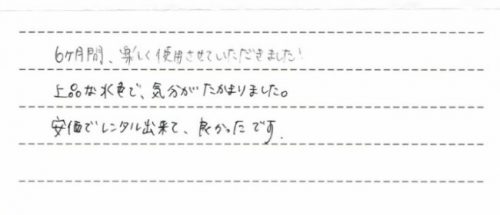 6ヶ月間、楽しく使用させていただきました!
上品な水色で、気分がたかまりました。
安価でレンタル出来て、良かったです.